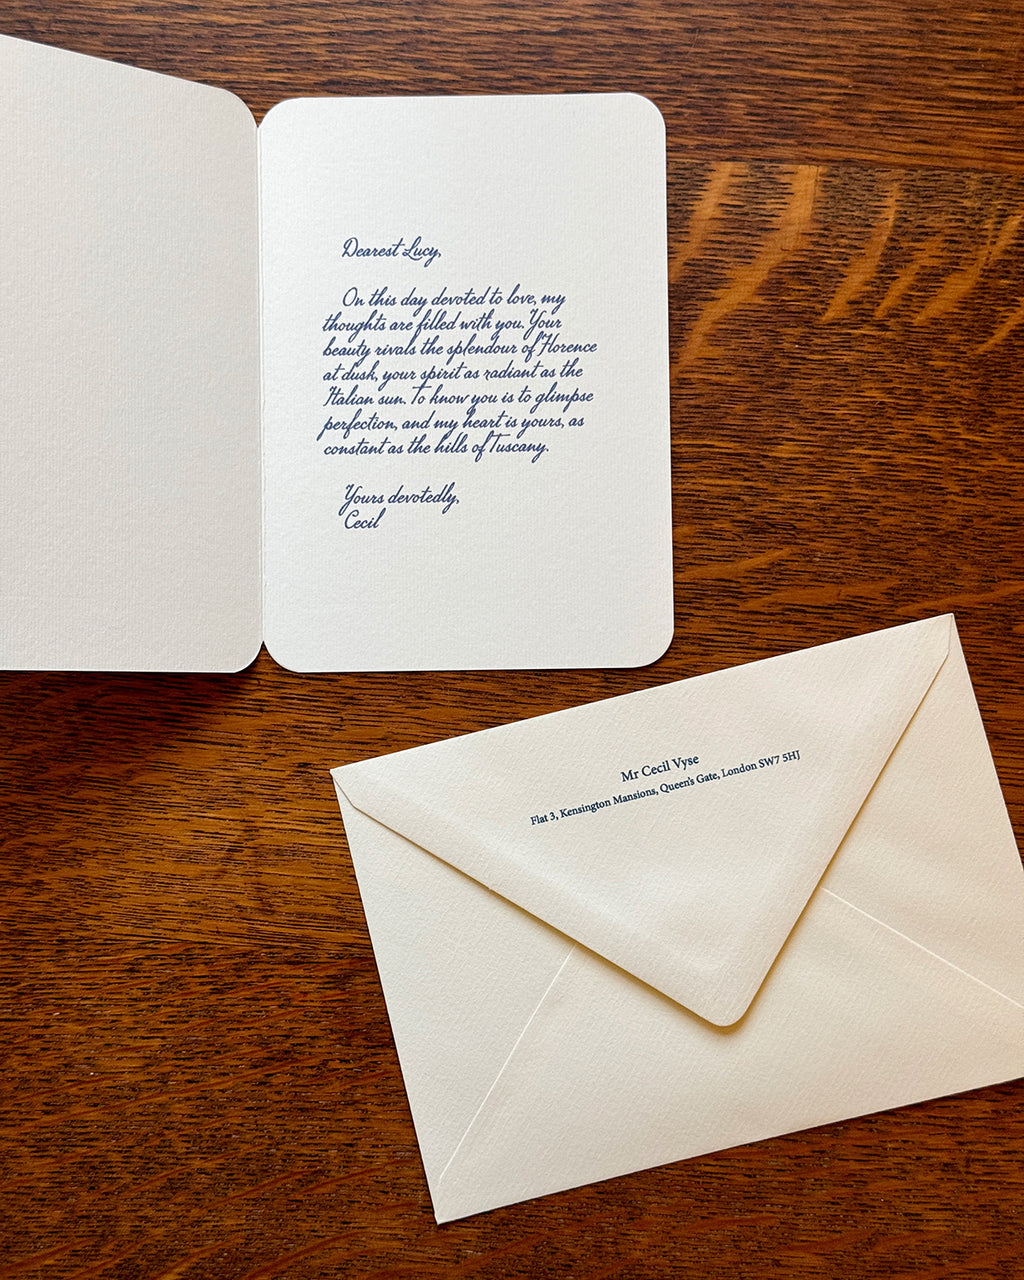 Dearest Lucy,
On this day devoted to love, my
thoughts are filled with you. Your
beauty rivals the splendour of Florence
at dusk, your spirit as radiant as the
Italian sun. To know you is to glimpse
perfection, and my heart is yours, as
constant as the hills of Tuscany.
Yours devotedly,
Cecil
Mr Cecil Vyse
Flat 3, Kensington Mansions, Queen's Gate, London SW7 5HJ